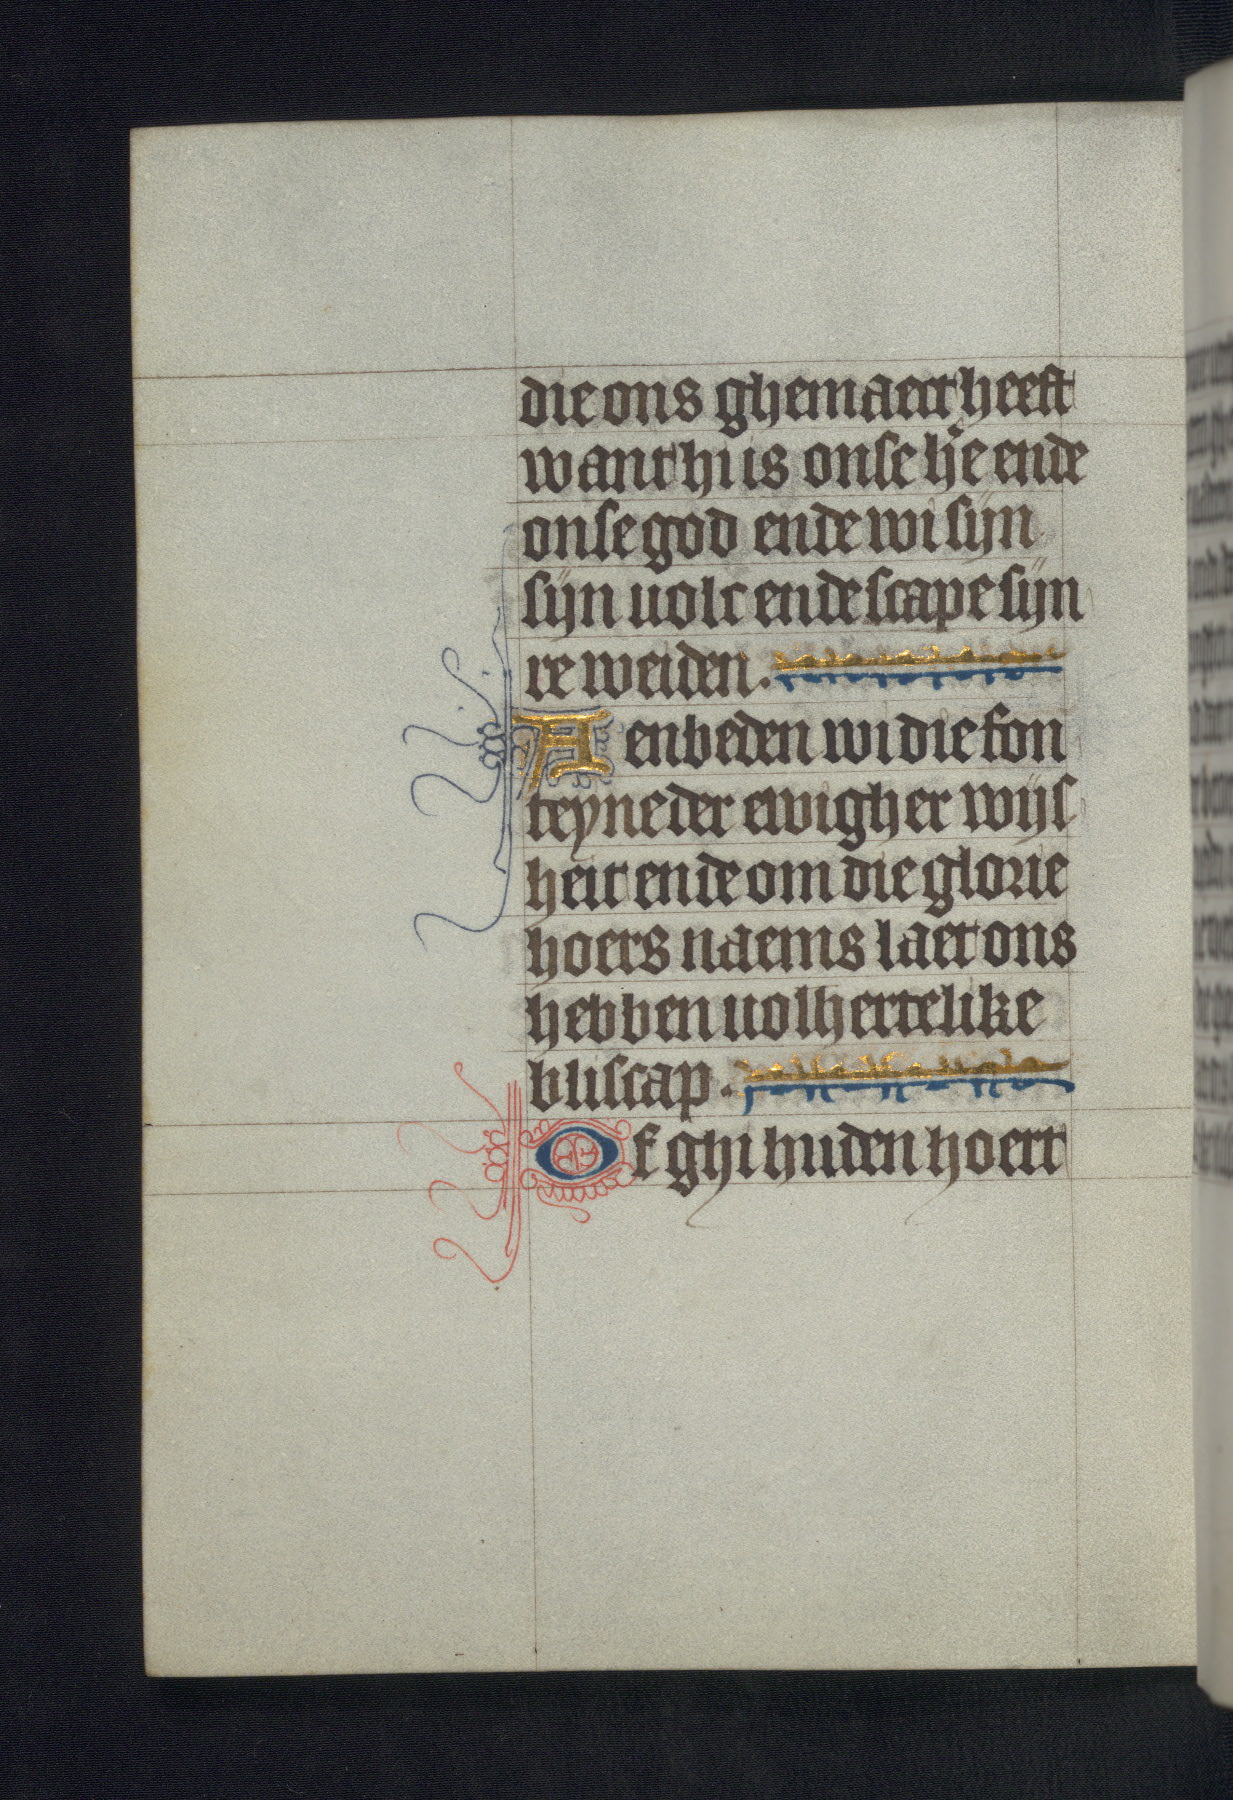 die ons ghemaect heeft
want hi is onse h̄e ende
onse god ende wi sijn
sijn volc ende scape sijn
re weiden.
Aenbeden wi die fon
teyne der ewigher wijs
heit ende om die glorie
hoers naems laet ons
hebben volhertelike
bliscap.
Of ghi huden hoert